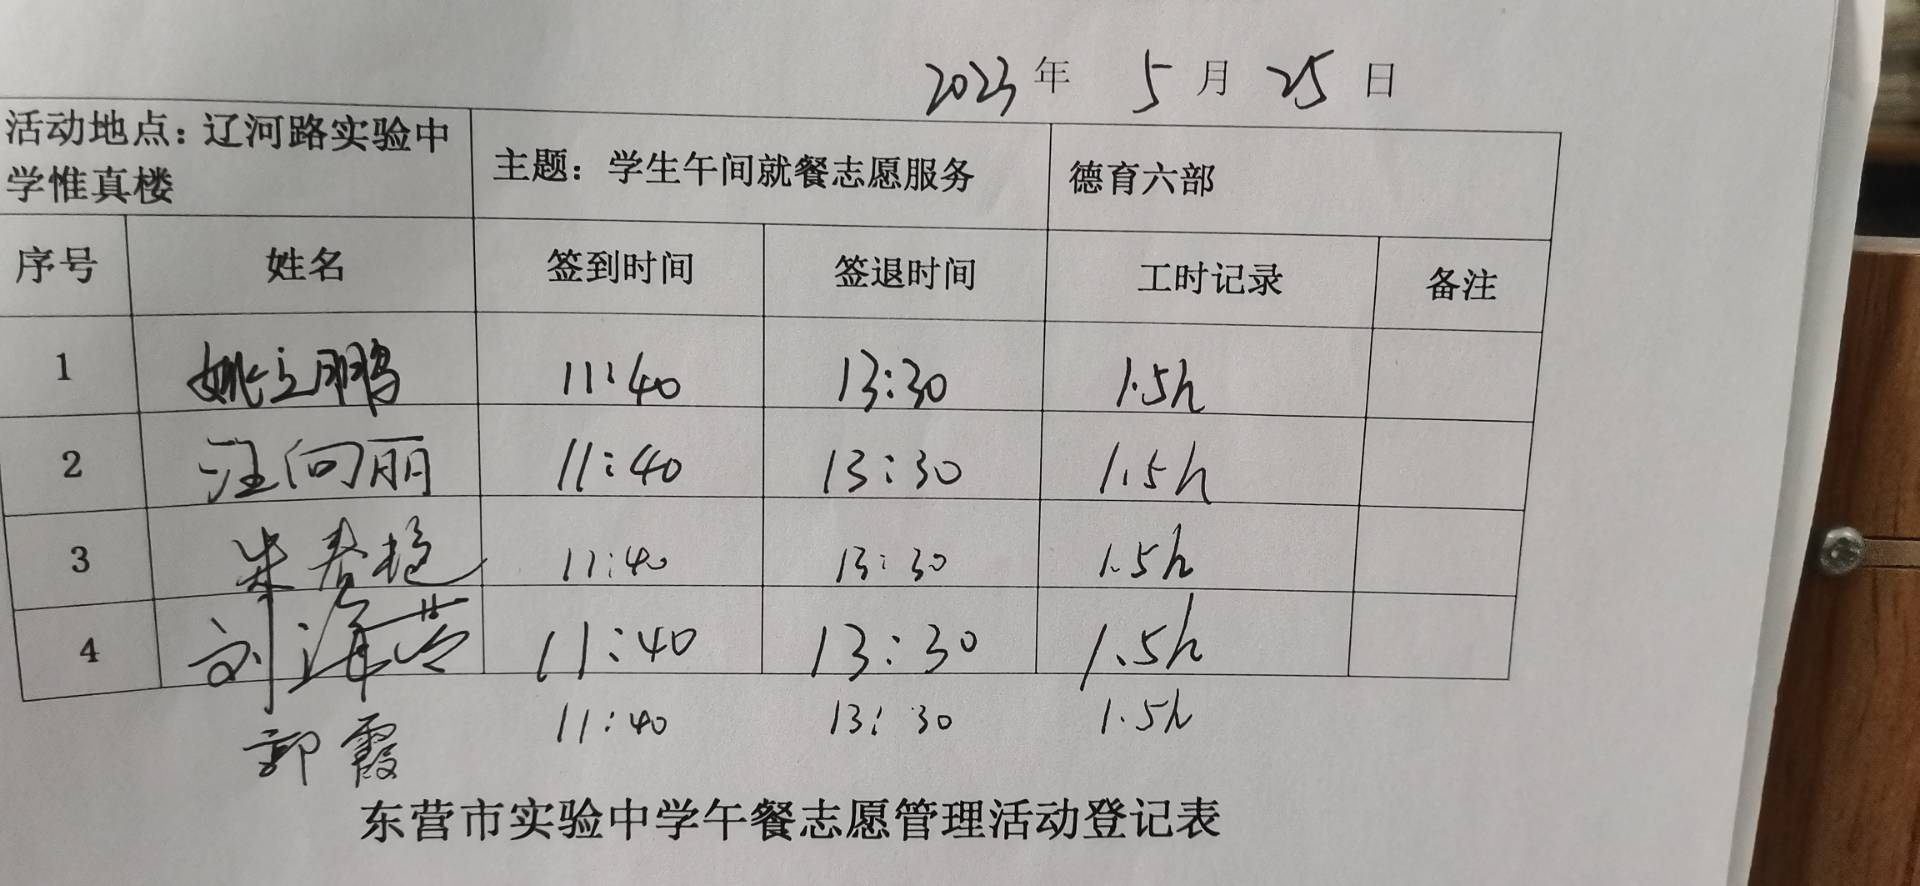 2023年 5月 25日
活动地点：辽河路实验中学惟真楼 主题：学生午间就餐志愿服务 德育六部
序号 姓名 签到时间 签退时间 工时记录 备注
1 姚立鹏 11:40 13:30 1.5h
2 汪向丽 11:40 13:30 1.5h
3 朱春艳 11:40 13:30 1.5h
4 刘海营 11:40 13:30 1.5h
郭霞 11:40 13:30 1.5h
东营市实验中学午餐志愿管理活动登记表